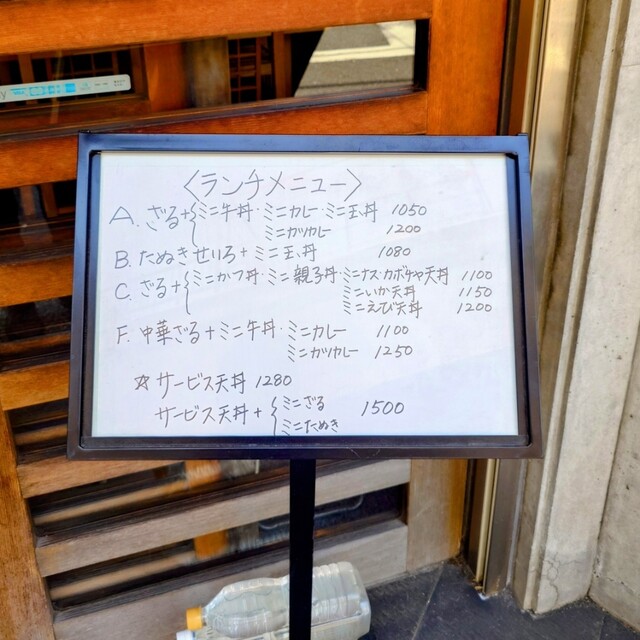 〈ランチメニュー〉
A. ざる+{ミニ牛丼・ミニカレー・ミニ玉丼 1050
ミニカツカレー 1200
B. たぬきせいろ+ミニ玉丼 1080
C. ざる+{ミニかつ丼・ミニ親子丼・ミニナス・カボチャ天丼 1100
ミニいか天丼 1150
ミニえび天丼 1200
F. 中華ざる+ミニ牛丼・ミニカレー 1100
ミニカツカレー 1250
☆サービス天丼 1280
サービス天丼+{ミニざる 1500
ミニたぬき